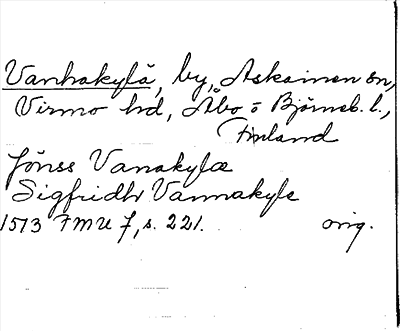 Vanhakylä, by, Askainen sn,
Virmo hd, Åbo o Björneb. l.,
Finland
Jönss Vanakylæ
Sigfridh Vannakyle
1573 FMU 7, s. 221. orig.